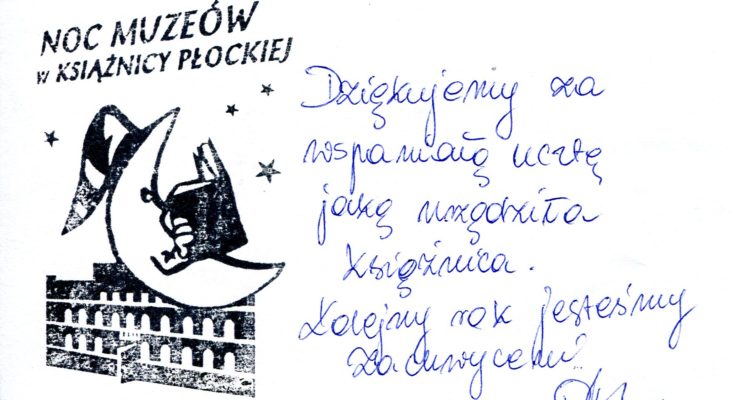 NOC MUZEÓW
W KSIĄŻNICY PŁOCKIEJ
Dziękujemy za
wspaniałą ucztę
jaką urządziła
Książnica.
Kolejny rok jesteśmy
zachwyceni